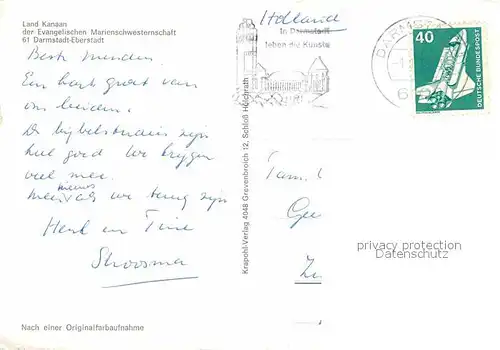 Land Kanaan
der Evangelischen Marienschwesternschaft
61 Darmstadt-Eberstadt
Beste vrienden.
Een hart groet van
ons beiden.
De bijbelstudies zijn
heel goed. We krijgen
veel mee.
nieuws
Meer als we terug zijn
Henk en Tine
Holland
In Darmstadt
leben die Künste
DARMST
40
DEUTSCHE BUNDESPOST
Krapohl-Verlag 4048 Grevenbroich 12, Schloß Hülchrath
Fam.
Ge
privacy protection
Datenschutz
Nach einer Originalfarbaufnahme